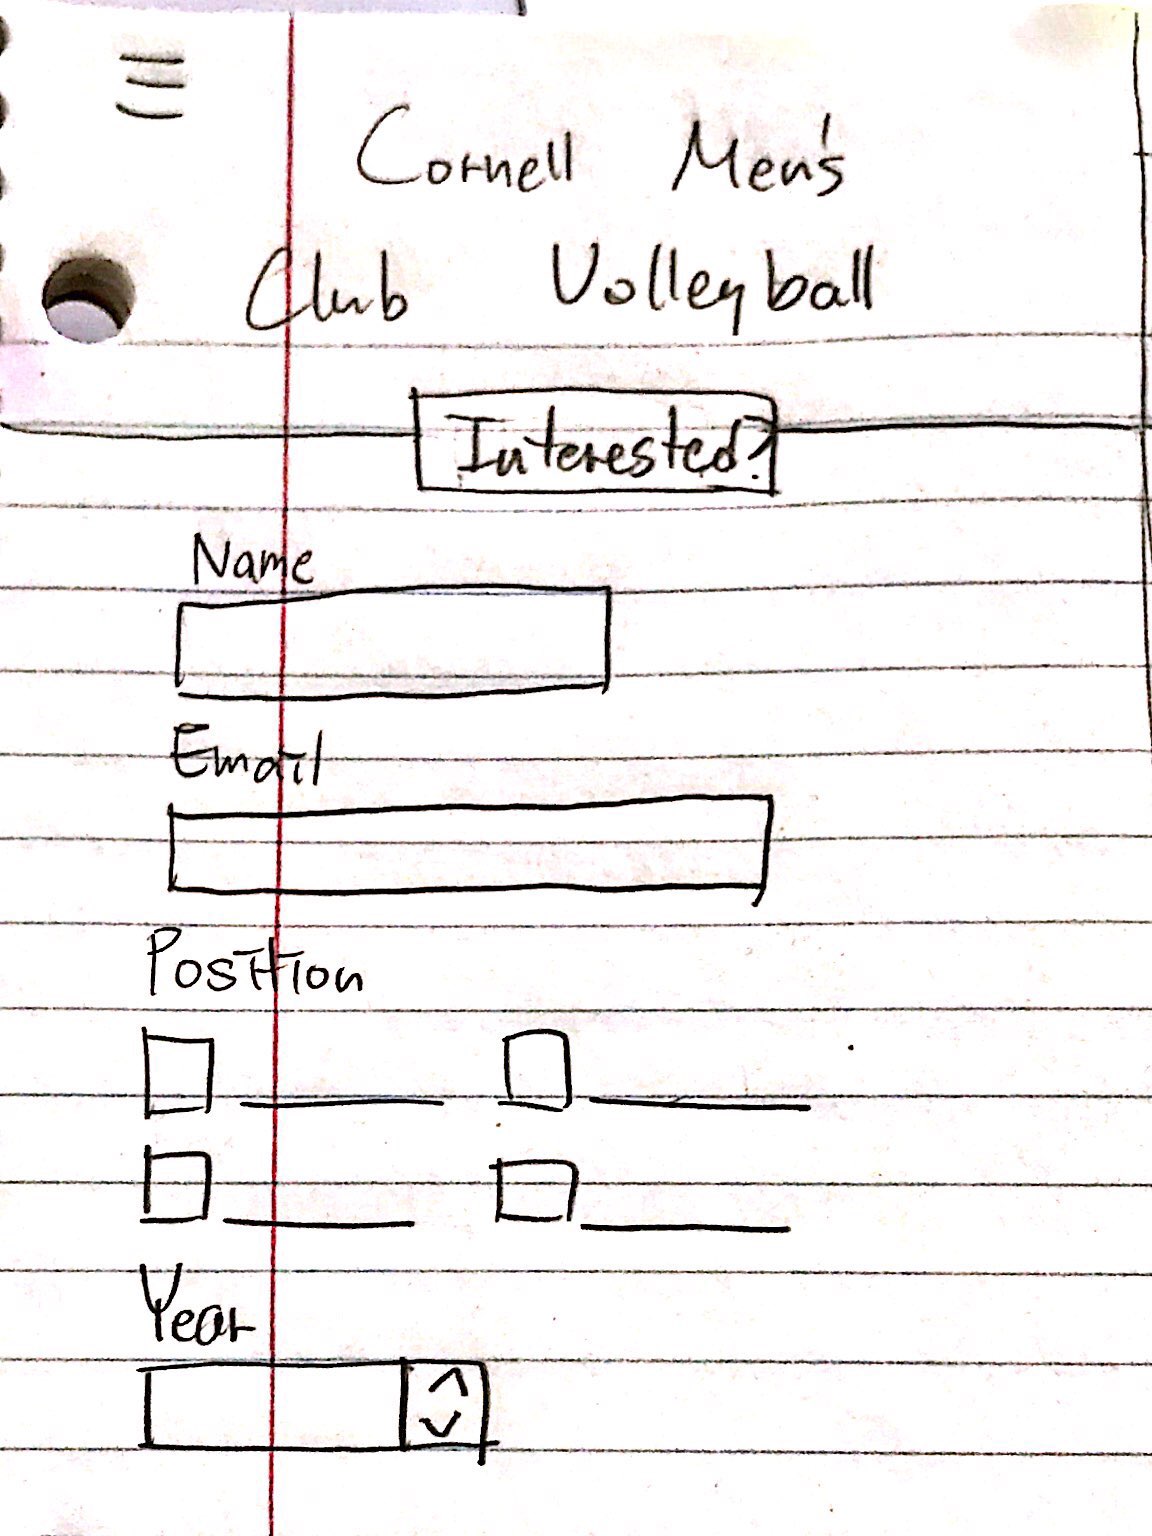 Cornell Men's
Club Volleyball
Interested?
Name
Email
Position
Year